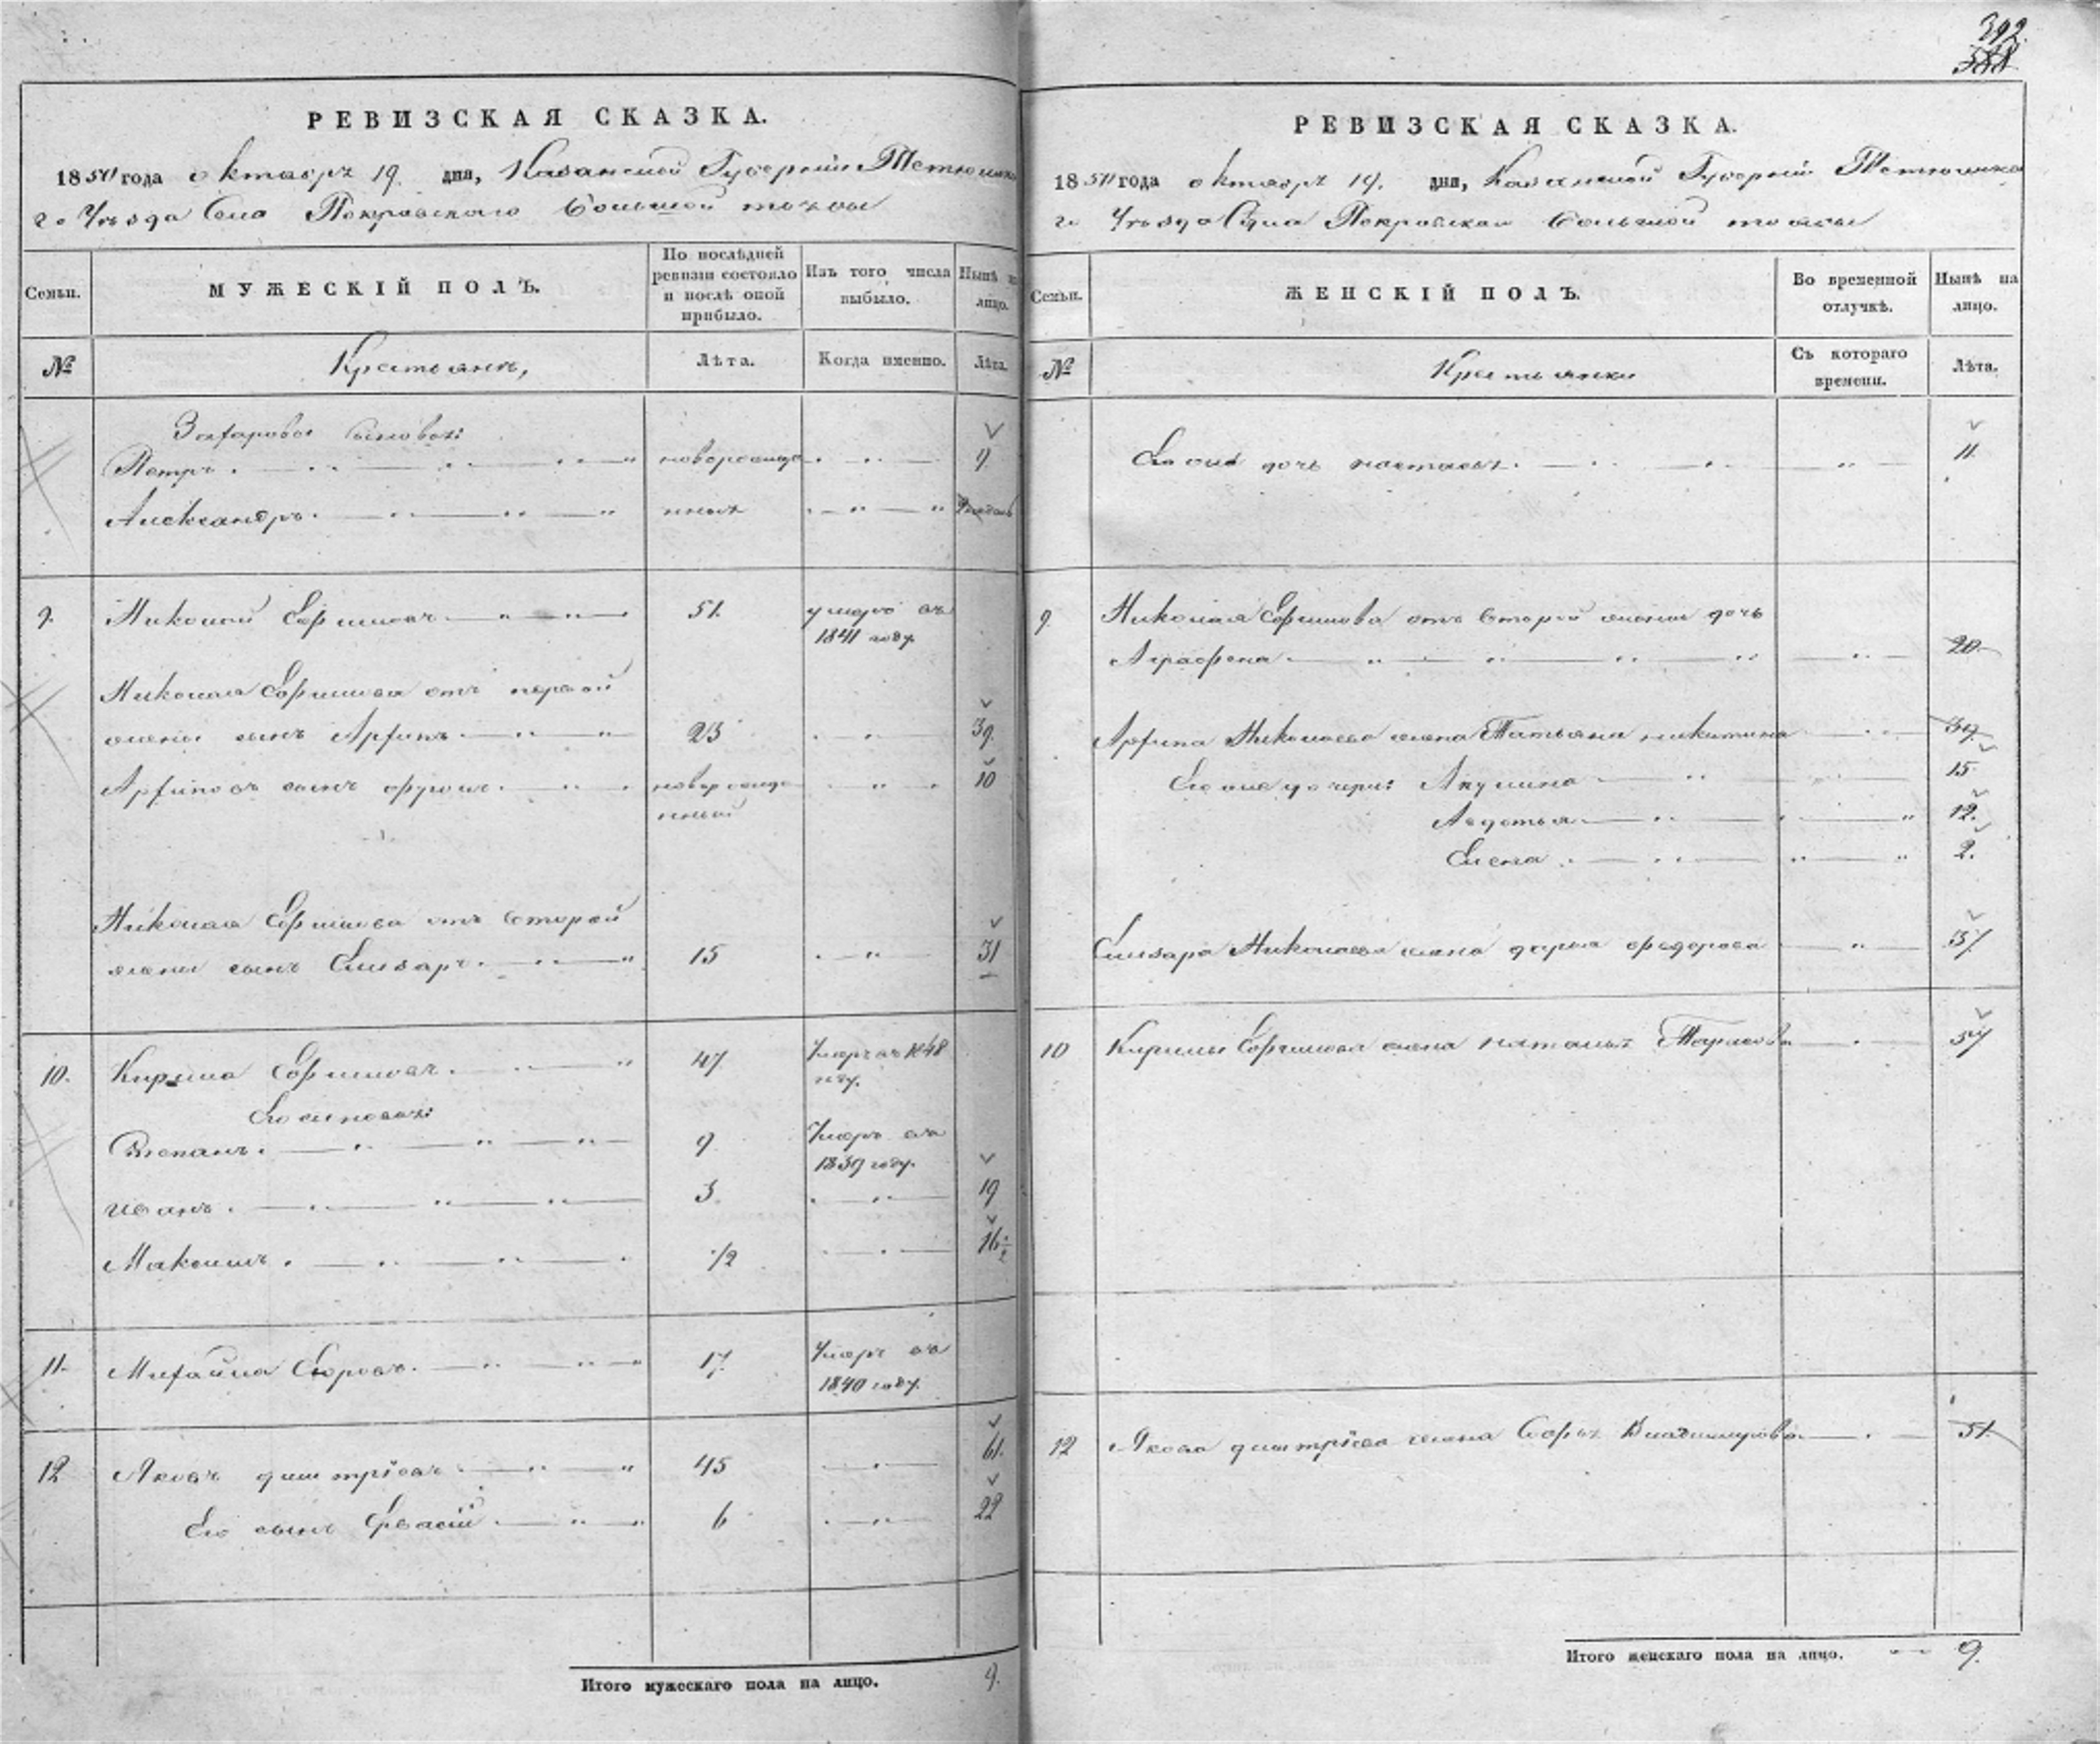 392.
588
РЕВИЗСКАЯ СКАЗКА.
1850 года октябрь 19. дня, Казанской Губернiи Тетюшска
го Уѣзда Села Покровскаго Большой тоже
МУЖЕСКIЙ ПОЛЪ.
Семьи.
По послѣдней ревизiи состояло и послѣ оной прибыло.
Изъ того числа выбыло.
Нынѣ на лицо.
№
Крестьянъ,
Лѣта.
Когда именно.
Лѣта.
Захаровы сыновья:
Петръ новорожде 9
Александръ нные
9. Николай Ефимовъ 51. умеръ въ
1841 году
Николая Ефимова отъ первой
жены сынъ Архипъ 23 39.
Архиповъ сынъ новорожде 10
нный
Николая Ефимова отъ второй
жены сынъ Елизаръ 15 31
10. Кирила Ефимовъ 47 Умеръ въ 1848
году.
Его сыновья:
Степанъ 9 Умеръ въ
1839 году.
Иванъ 3 19
Максимъ 1/2 16 1/2
11. Михайла Егоровъ 17. Умеръ въ
1840 году.
12 Яковъ дмитрiевъ 45 61.
Его сынъ 6 22
Итого мужескаго пола на лицо. 9.
РЕВИЗСКАЯ СКАЗКА.
1850 года октябрь 19. дня, Казанской Губернiи Тетюшска
го Уѣзда Села Покровскаго Большой
Семьи.
ЖЕНСКIЙ ПОЛЪ.
Во временной отлучкѣ.
Нынѣ на лицо.
№
Крестьянки
Съ котораго времени.
Лѣта.
Его же дочь настасья 11.
9. Николая Ефимова отъ второй жены дочь
Аграфена 20
Архипа Николаева жена Татьяна никитина 39.
Его же дочери: Акулина 15.
Авдотья 12.
Елена 2.
Елизара Николаева жена дарья федорова 31.
10 Кирилы Ефимова жена наталья Тарасова 54
12 Якова дмитрiева жена Софья Владимирова 51.
Итого женскаго пола на лицо. 9.